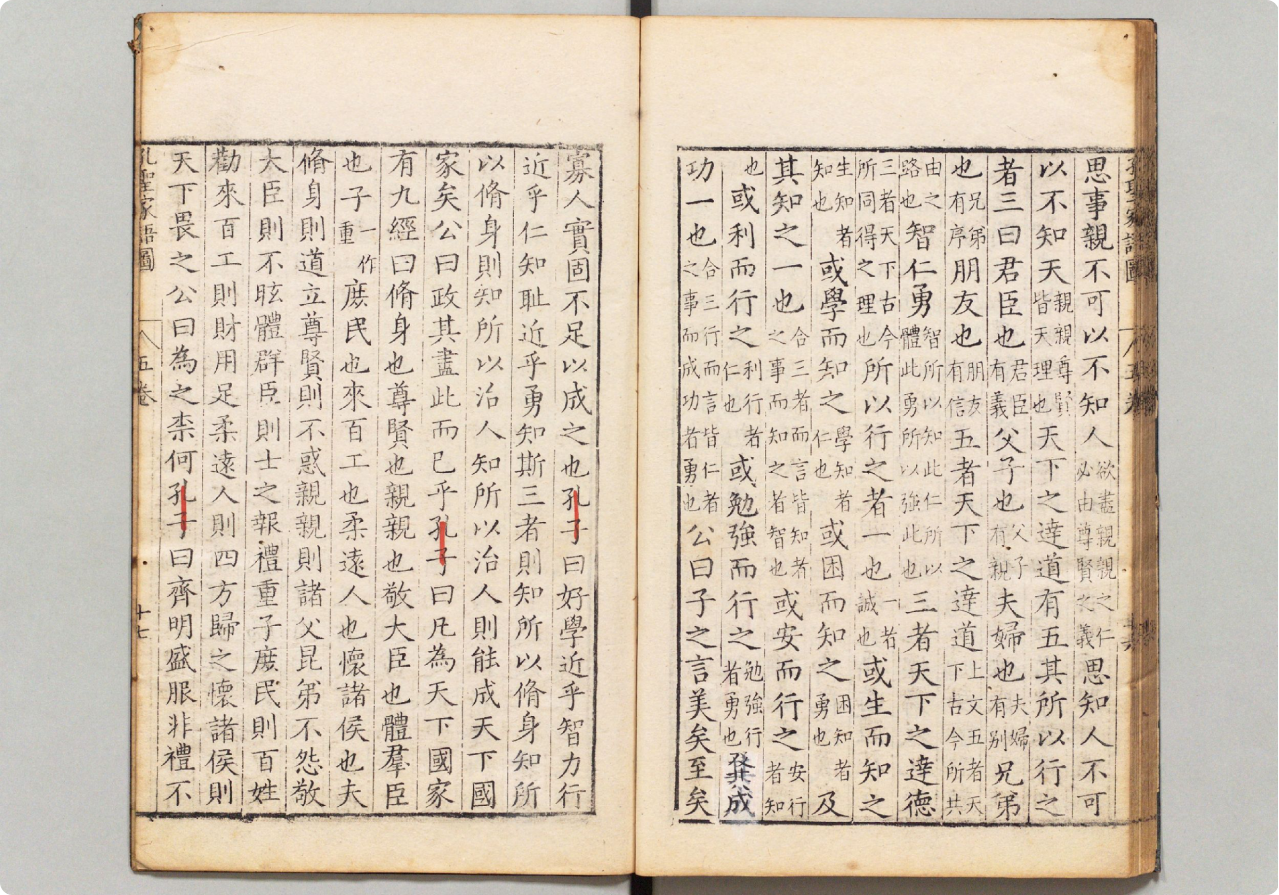 思事親不可以不知人欲盡親親之仁必由尊賢之義思知人不可
以不知天親親尊賢皆天理也天下之達道有五其所以行之
者三曰君臣也君臣有義父子也父子有親夫婦也夫婦有别兄弟
也兄弟有序朋友也朋友有信五者天下之達道上文五者天下古今所共
由之路也智仁勇智所以知此仁所以體此勇所以強此也三者天下之達德
三者天下古今所同得之理也所以行之者一也一者誠也或生而知之
生知者知也或學而知之學知者仁也或困而知之困知者勇也及
其知之一也合三者而言皆知者之事而知之者智也或安而行之安行者知
也或利而行之利行者仁也或勉強而行之勉強行者勇也及其成
功一也合三行而言皆仁者之事而成功者勇也公曰子之言美矣至矣
寡人實固不足以成之也孔子曰好學近乎智力行
近乎仁知恥近乎勇知斯三者則知所以脩身知所
以脩身則知所以治人知所以治人則能成天下國
家矣公曰政其盡此而已乎孔子曰凡為天下國家
有九經曰脩身也尊賢也親親也敬大臣也體羣臣
也子一作重庶民也來百工也柔遠人也懷諸侯也夫
脩身則道立尊賢則不惑親親則諸父昆弟不怨敬
大臣則不眩體群臣則士之報禮重子庶民則百姓
勸來百工則財用足柔遠人則四方歸之懷諸侯則
天下畏之公曰為之柰何孔子曰齊明盛服非禮不
孔聖家語圖 五卷 十七